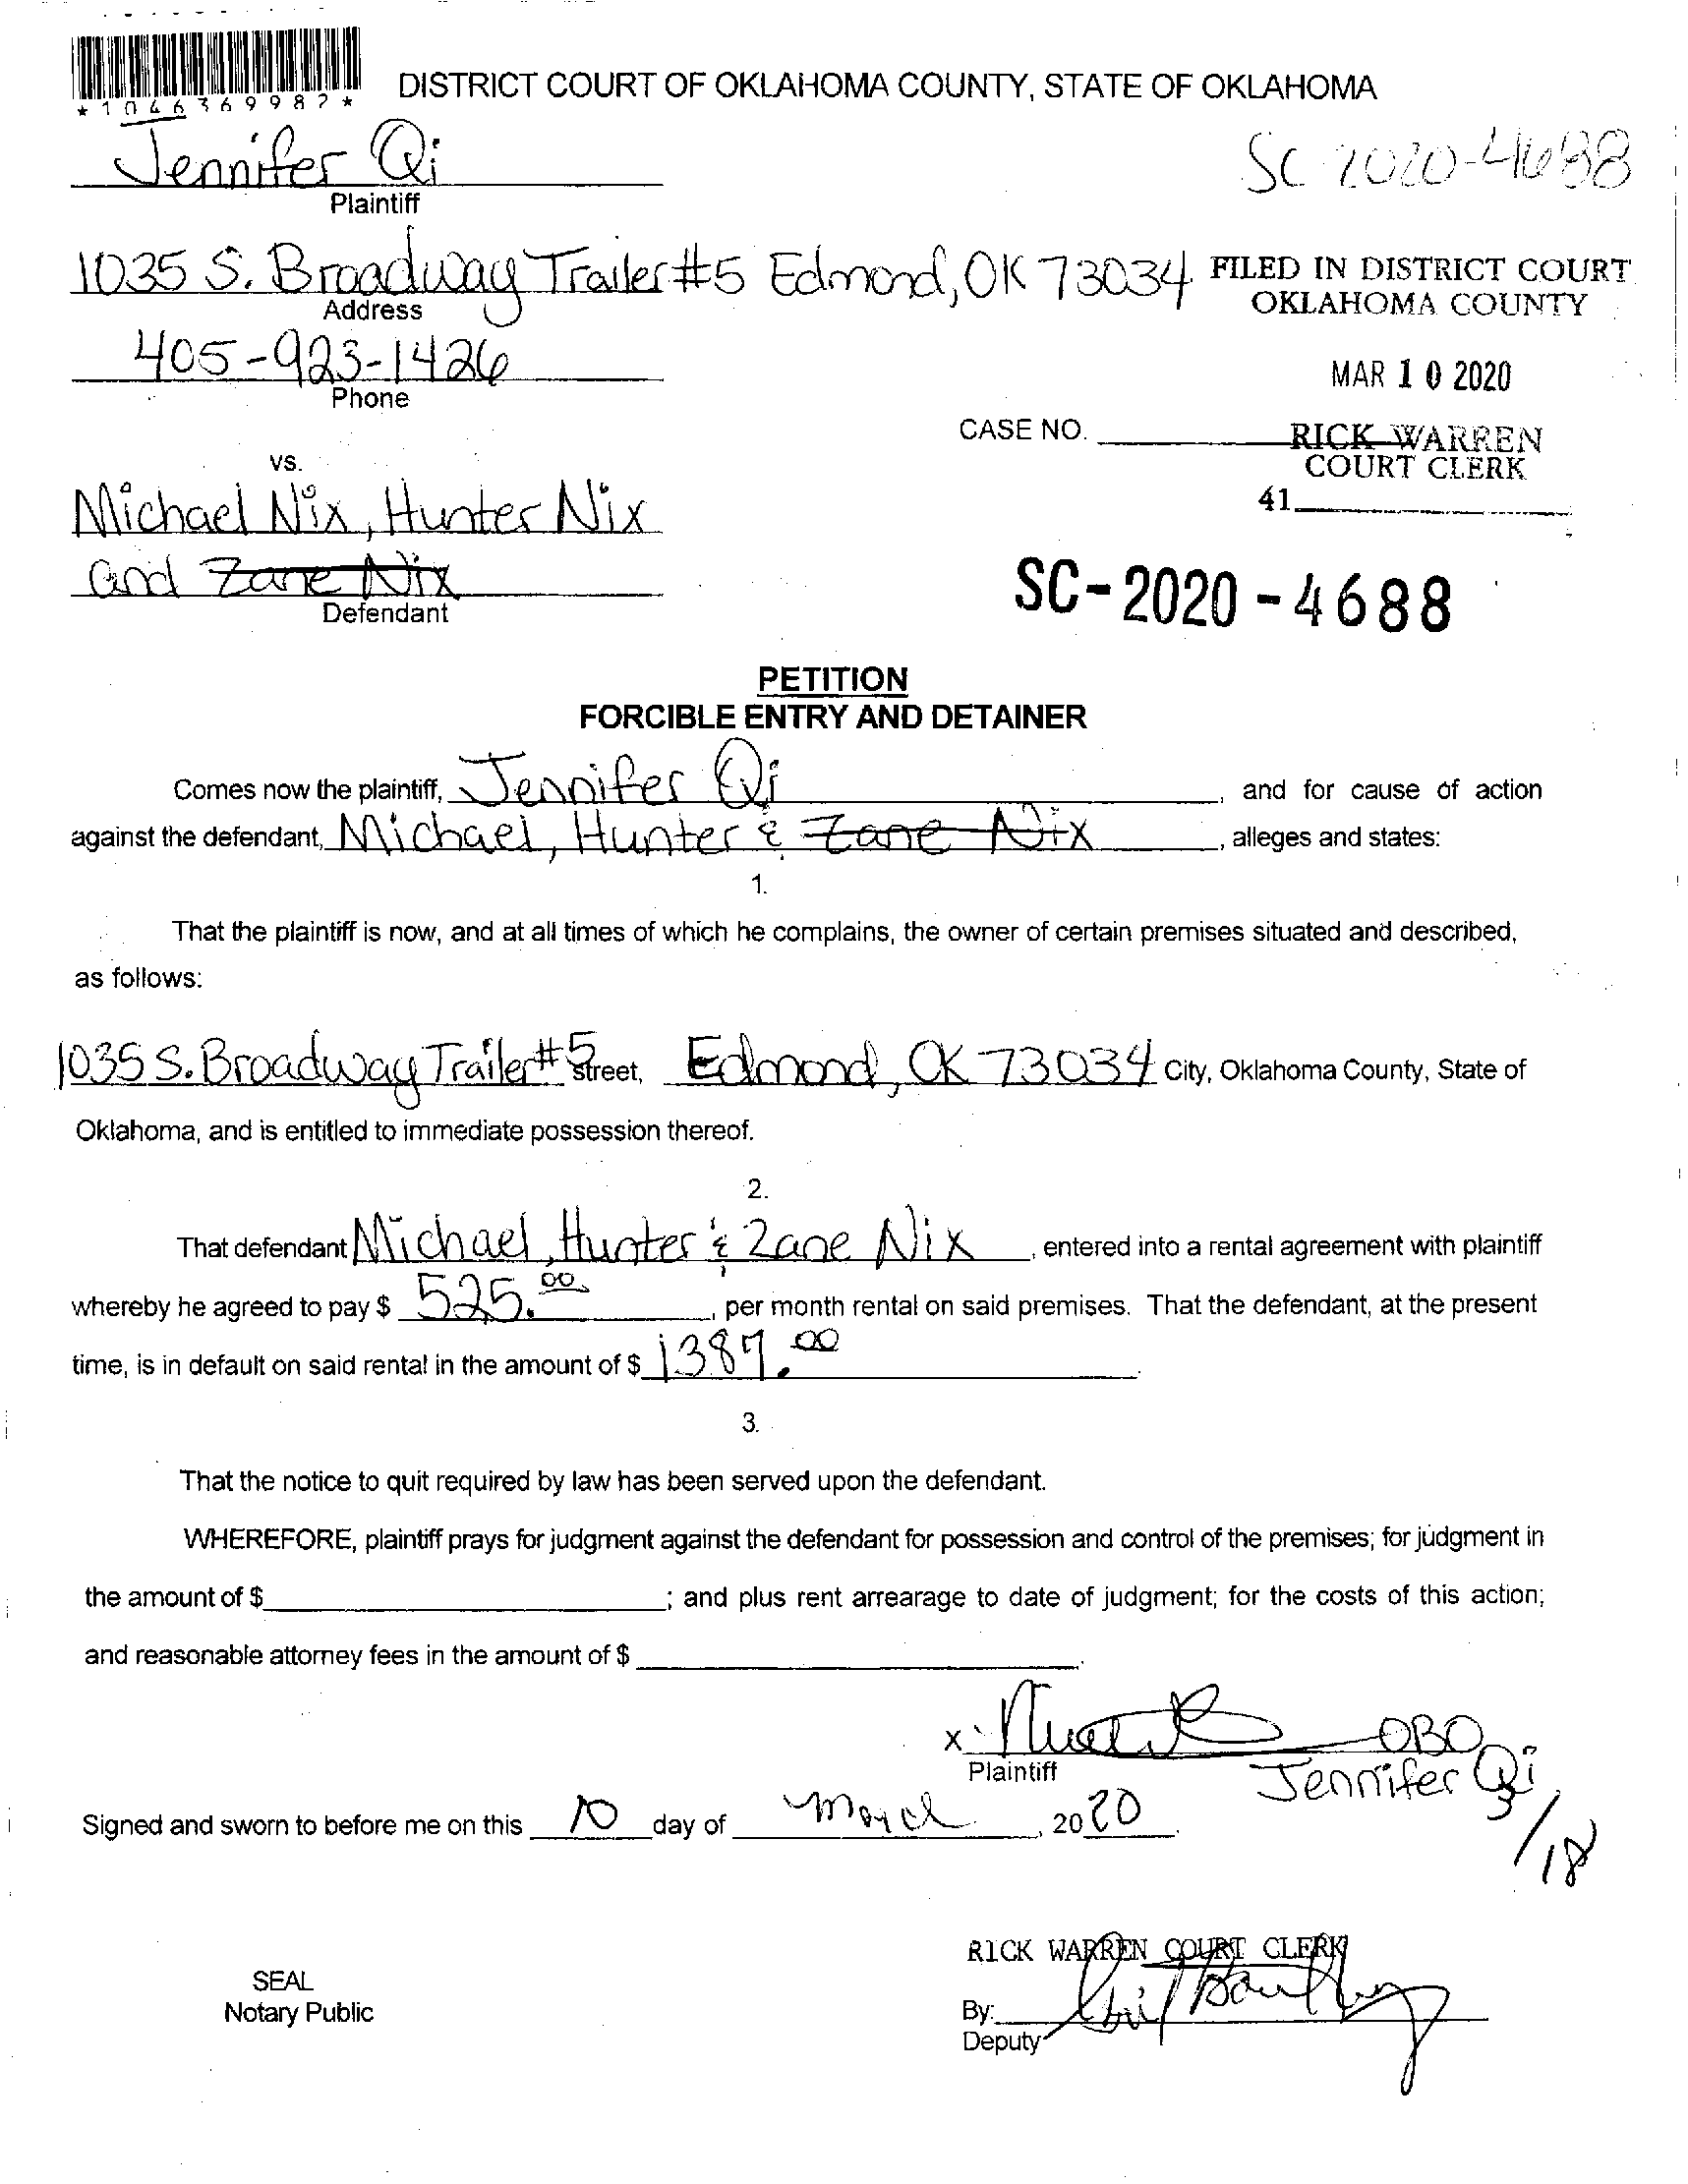 *1046369982*
DISTRICT COURT OF OKLAHOMA COUNTY, STATE OF OKLAHOMA
Jennifer Qi
SC 2020-4688
Plaintiff
1035 S. Broadway Trailer #5 Edmond, OK 73034
FILED IN DISTRICT COURT
Address
OKLAHOMA COUNTY
405-923-1426
MAR 10 2020
Phone
CASE NO.
RICK WARREN
vs.
COURT CLERK
41
Michael Nix, Hunter Nix
and Zane Nix
SC-2020-4688
Defendant
PETITION
FORCIBLE ENTRY AND DETAINER
Comes now the plaintiff, Jennifer Qi, and for cause of action
against the defendant, Michael, Hunter & Zane Nix, alleges and states:
1.
That the plaintiff is now, and at all times of which he complains, the owner of certain premises situated and described,
as follows:
1035 S. Broadway Trailer #5 Street, Edmond, OK 73034 City, Oklahoma County, State of
Oklahoma, and is entitled to immediate possession thereof.
2.
That defendant Michael, Hunter & Zane Nix, entered into a rental agreement with plaintiff
whereby he agreed to pay $ 525.00, per month rental on said premises. That the defendant, at the present
time, is in default on said rental in the amount of $ 1387.00
3.
That the notice to quit required by law has been served upon the defendant.
WHEREFORE, plaintiff prays for judgment against the defendant for possession and control of the premises; for judgment in
the amount of $ ; and plus rent arrearage to date of judgment; for the costs of this action;
and reasonable attorney fees in the amount of $ .
x OBO
Plaintiff
Jennifer Qi
Signed and sworn to before me on this 10 day of March, 2020
3/18
RICK WARREN COURT CLERK
SEAL
Notary Public
By:
Deputy